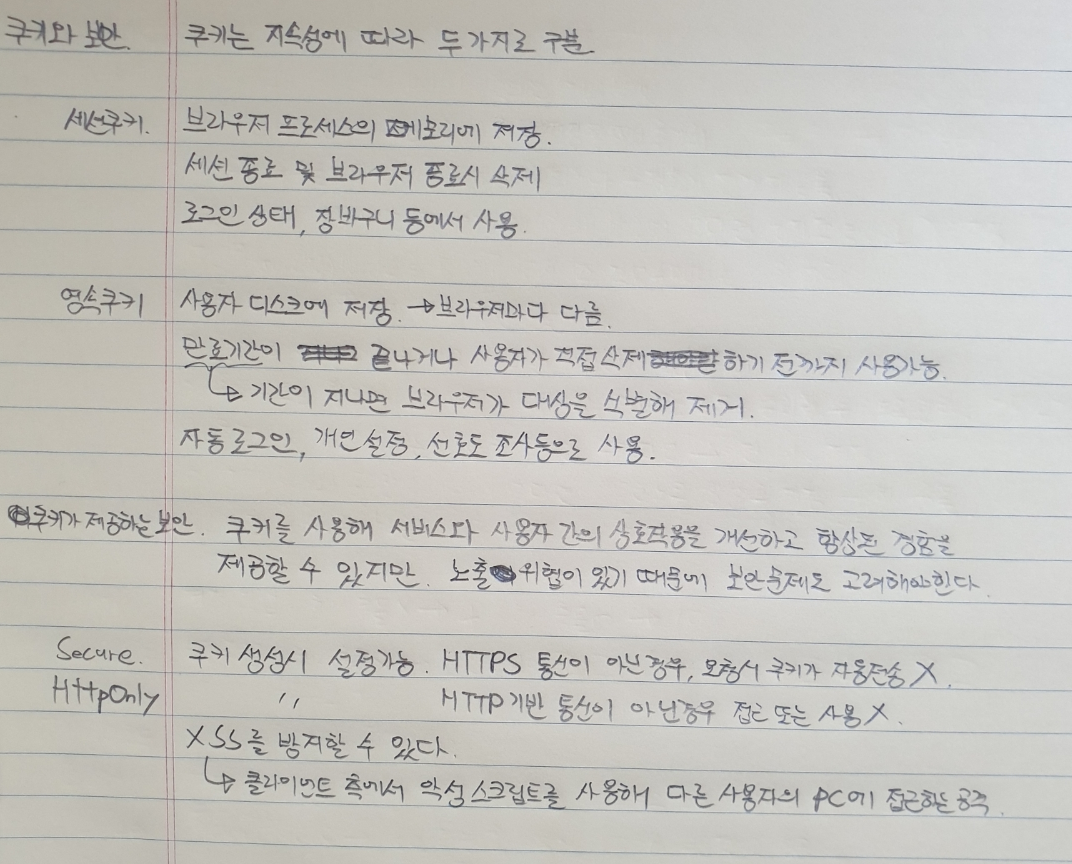 쿠키와 보안. 쿠키는 지속성에 따라 두가지로 구분.
세션쿠키. 브라우저 프로세스의 메모리에 저장.
세션 종료 및 브라우저 종료시 삭제
로그인 상태, 장바구니 등에서 사용.
영속쿠키 사용자 디스크에 저장. →브라우저마다 다름.
만료기간이 끝나거나 사용자가 직접 삭제하기 전까지 사용가능.
↳ 기간이 지나면 브라우저가 대상을 식별해 제거.
자동로그인, 개인설정, 선호도 조사등으로 사용.
쿠키가 제공하는 보안. 쿠키를 사용해 서비스와 사용자 간의 상호작용을 개선하고 향상된 경험을
제공할 수 있지만. 노출 위협이 있기 때문에 보안문제도 고려해야한다.
Secure. 쿠키 생성시 설정가능. HTTPS 통신이 아닌경우, 요청시 쿠키가 자동전송 X.
HttpOnly 〃 HTTP기반 통신이 아닌경우 접근 또는 사용X.
XSS를 방지할 수 있다.
↳ 클라이언트 측에서 악성스크립트를 사용해 다른 사용자의 PC에 접근하는 공격.